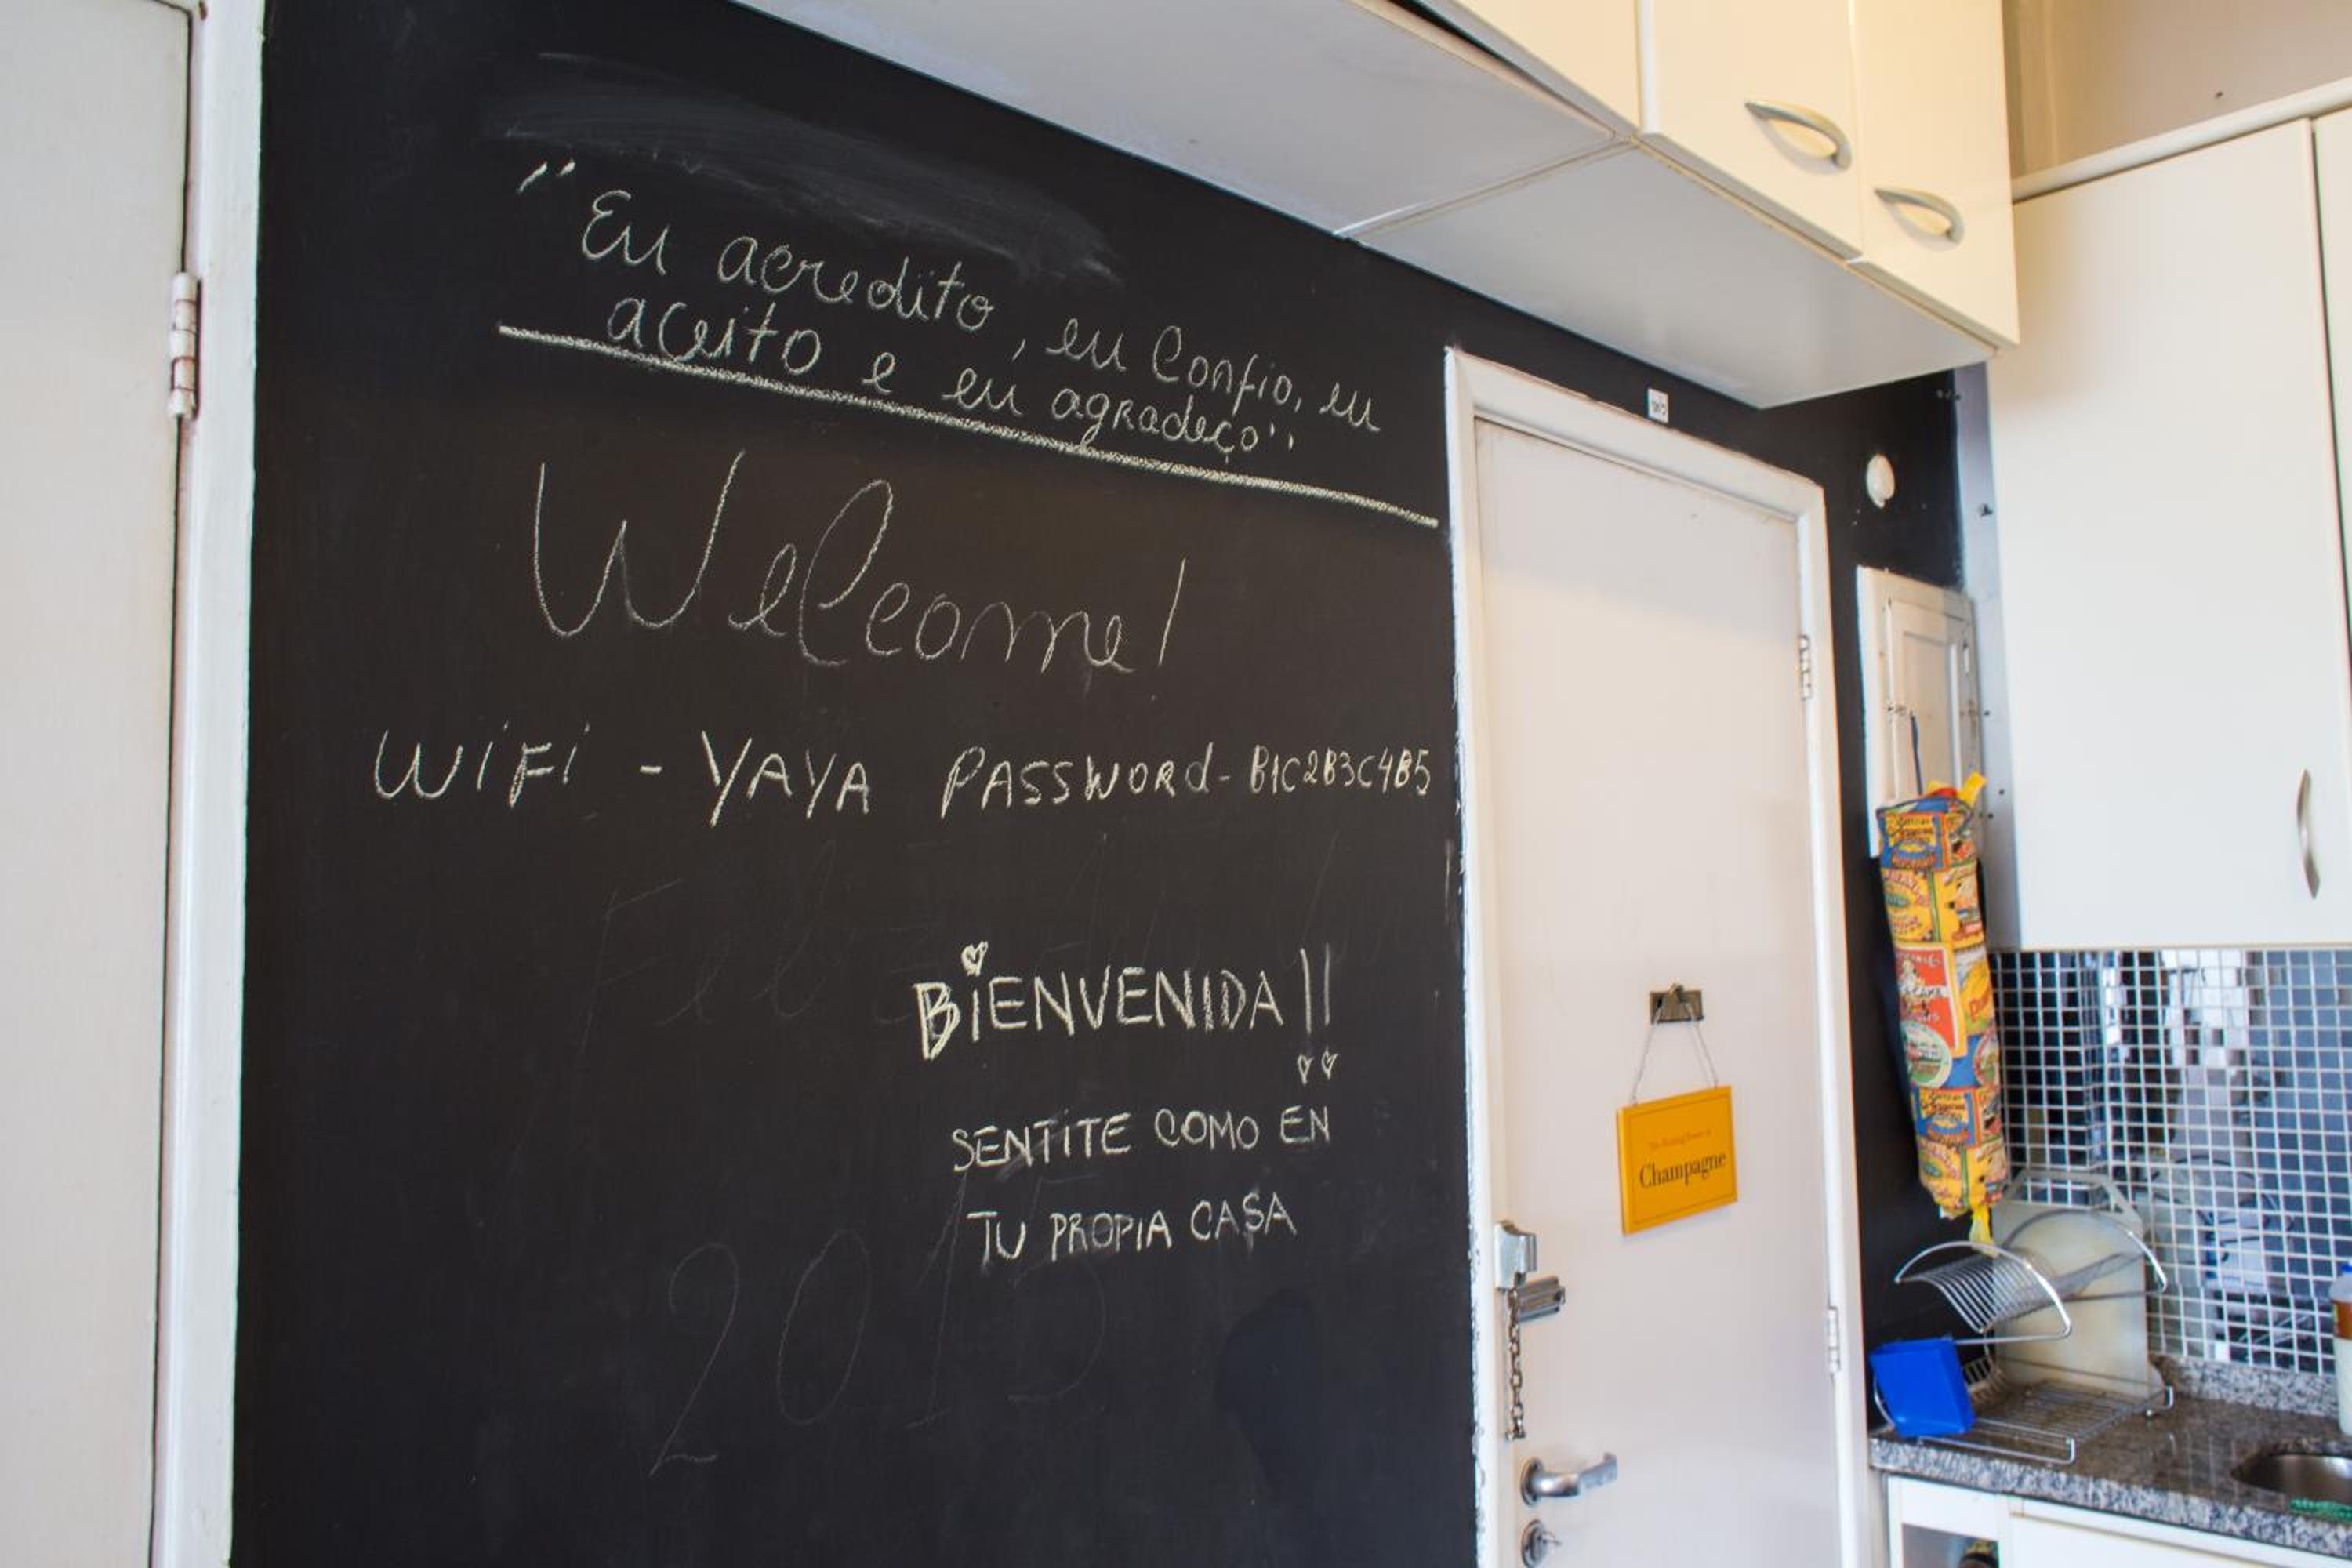 "Eu acredito, eu confio, eu
aceito e eu agradeço"
Welcome!
WiFi - YAYA PASSWORd - B1C2B3C4B5
BiENVENIDA!!
SENTITE COMO EN
TU PROPIA CASA
2015
Champagne